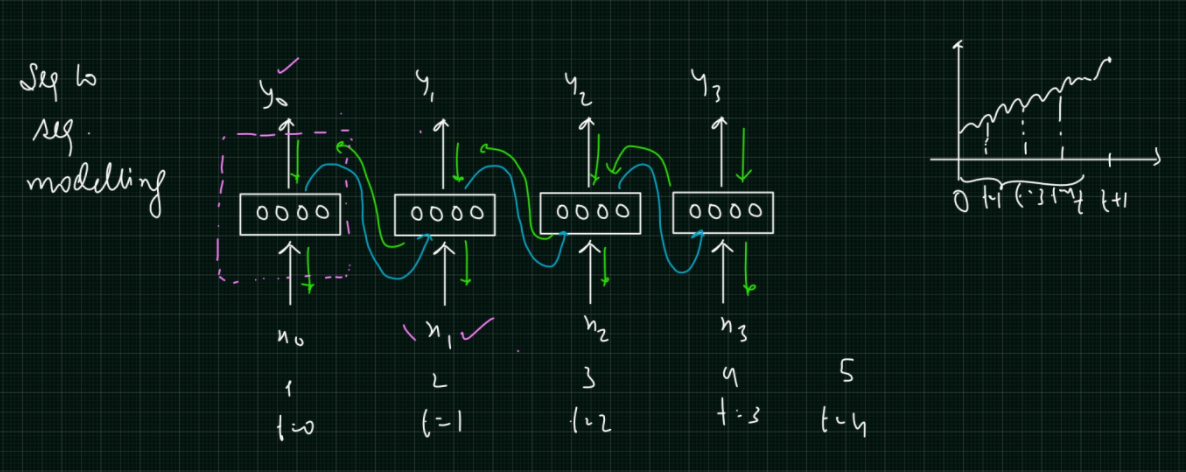 Seq to
seq.
modelling
y₀ y₁ y₂ y₃
0000 0000 0000 0000
x₀ x₁ x₂ x₃
1 2 3 4 5
t=0 t=1 t=2 t=3 t=4
0 t+1